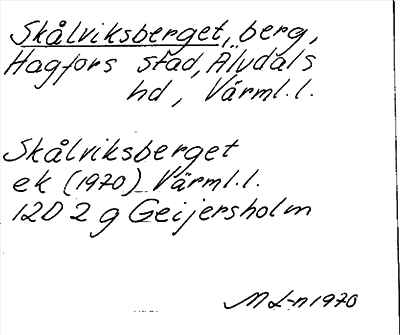 Skålviksberget, berg,
Hagfors stad, Älvdals
hd, Värml.l.
Skålviksberget
ek (1970) Värml.l.
12D 2 g Geijersholm
M L-n 1970